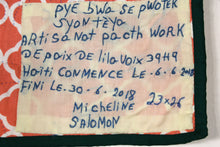 PYE bwA SE PWOTEK
SYON TÈYO
ARtiSANot PAtch WORK
DEPAiX DE lilAVOIX 3949
HAiti COMMENCE LE.6.6 2018
FiNi LE.30-6-2018
MichELiNE 23x26
SALOMON